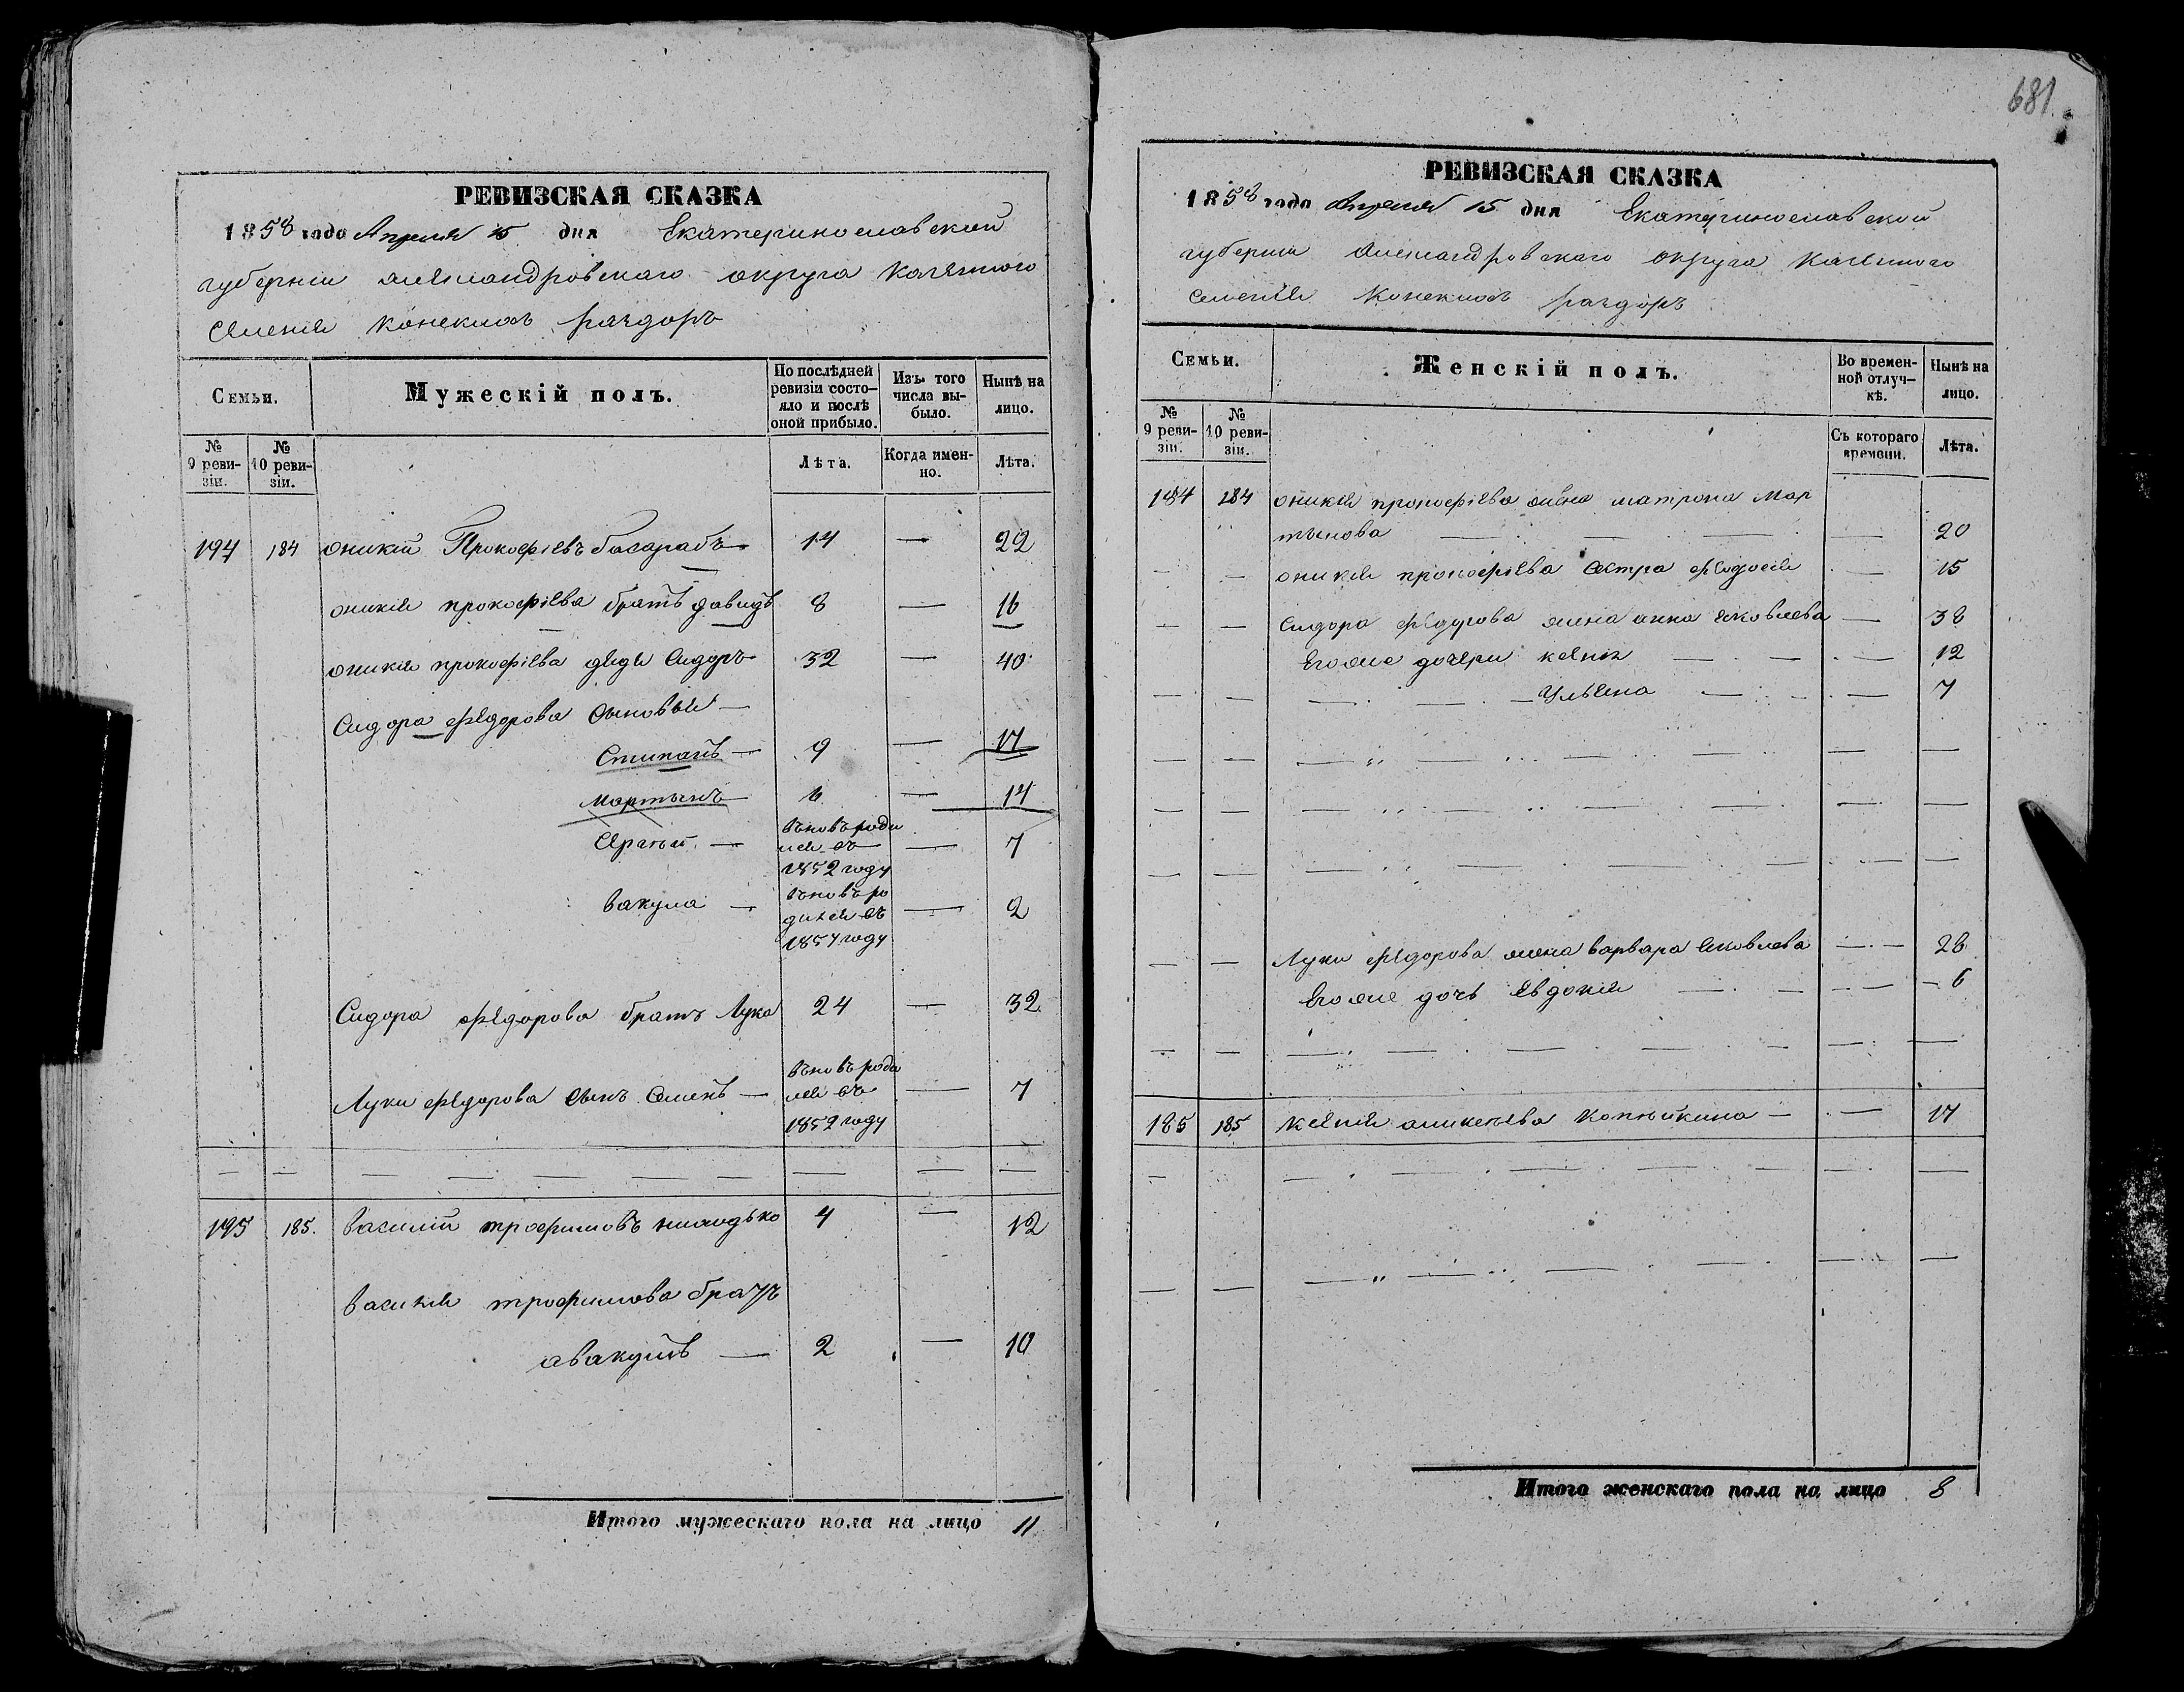 РЕВИЗСКАЯ СКАЗКА
1858 года Апреля 15 дня Екатеринославской
губернии Александровскаго округа казенного
селения Конских раздоръ
Семьи.
Мужескій полъ.
По послѣдней ревизіи состо-
яло и послѣ
оной прибыло.
Изъ того
числа вы-
было.
Нынѣ на
лицо.
№
9 реви-
зіи.
№
10 реви-
зіи.
Лѣта.
Когда имен-
но.
Лѣта.
194 184 оникій Прокофіевъ басарабъ 14 — 22
оникія прокофіева братъ давидъ 8 — 16
оникія прокофіева дядя Сидоръ 32 — 40
Сидора федорова сыновья —
Стипанъ — 9 — 17
мартынъ 6 — 14
вновь роди
лся въ — 7
1852 году
вакула — вновь ро
дился въ — 2
1857 году
Сидора федорова братъ Лука 24 — 32
Луки федорова сынъ Семенъ — вновь роди
лся въ — 7
1852 году
195 185. василій трофимовъ 4 — 12
василія трофимова братъ
авакумъ — 2 — 10
Итого мужескаго пола на лицо 11
681.
РЕВИЗСКАЯ СКАЗКА
1858 года Апреля 15 дня Екатеринославской
губернии Александровскаго округа казенного
селения Конских раздоръ
Семьи.
Женскій полъ.
Во времен-
ной отлуч-
кѣ.
Нынѣ на
лицо.
№
9 реви-
зіи.
№
10 реви-
зіи.
Съ котораго
времени.
Лѣта.
194 184 оникія прокофіева жена матрона Мар
тынова — 20
оникія прокофіева сестра феодосія — 15
Сидора федорова жена анна яковлева — 38
Его же дочери ксенія — 12
Ульяна — 7
Луки федорова жена варвара яковлева — 28
Его же дочь Евдокия — 6
185 185 ксенія аликсѣева Копѣйкина — 17
Итого женскаго пола на лицо 8